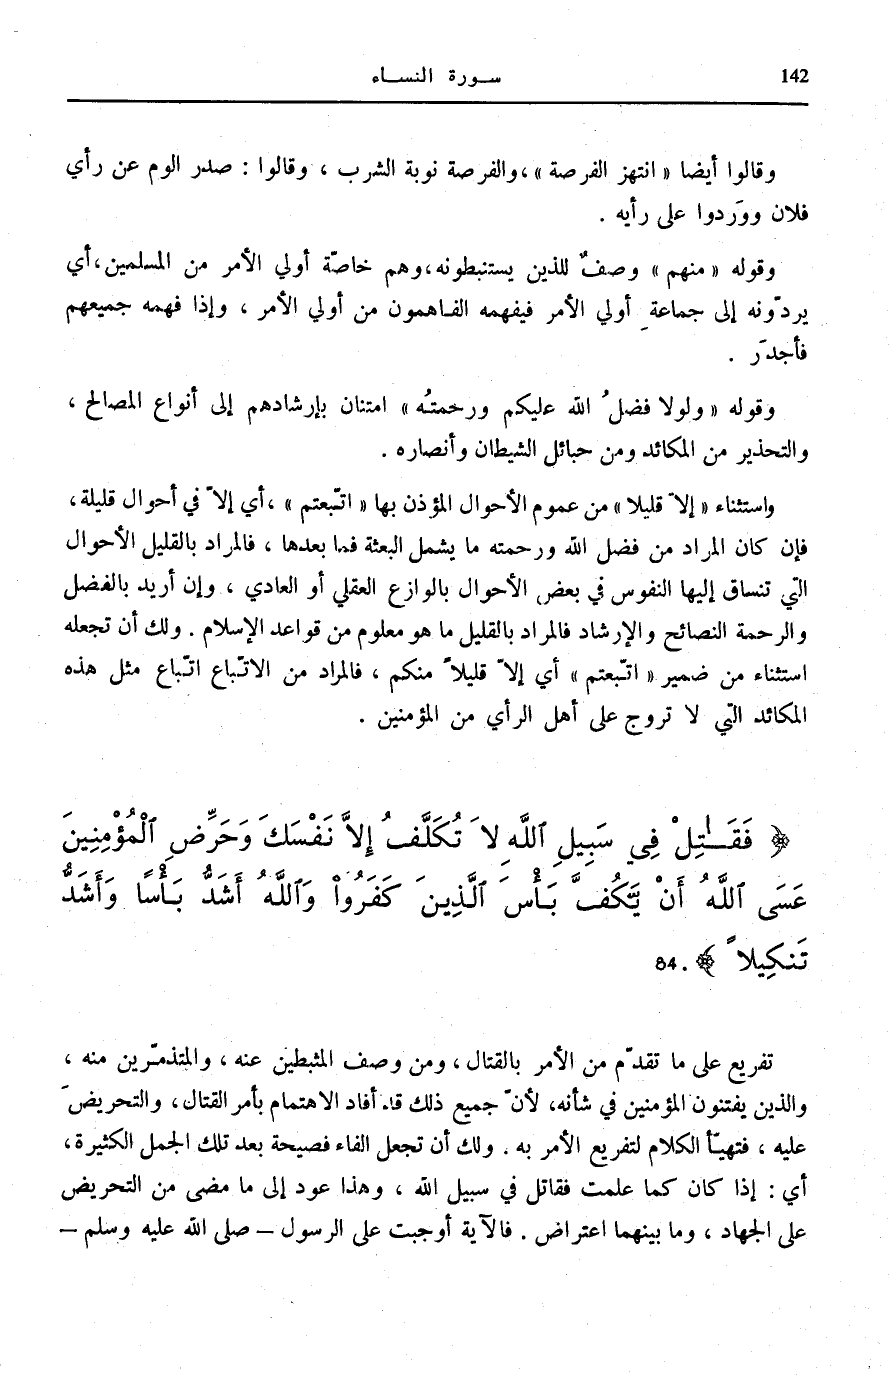 142
سورة النساء
وقالوا أيضا « انتهز الفرصة »،والفرصة نوبة الشرب ، وقالوا : صدر الوم عن رأي
فلان ووَردوا على رأيه .
وقوله « منهم » وصفٌ للذين يستنبطونه،وهم خاصّة أولي الأمر من المسلمين،أي
يردّونه إلى جماعة أولي الأمر فيفهمه الفاهمون من أولي الأمر ، وإذا فهمه جميعهم
فأجدَر .
وقوله « ولولا فضلُ الله عليكم ورحمتُه » امتنان بإرشادهم إلى أنواع المصالح ،
والتحذير من المكائد ومن حبائل الشيطان وأنصاره .
واستثناء « إلاّ قليلا » من عموم الأحوال المؤذن بها « اتّبعتم » ،أي إلاّ في أحوال قليلة،
فإن كان المراد من فضل الله ورحمته ما يشمل البعثة فما بعدها ، فالمراد بالقليل الأحوال
التي تنساق إليها النفوس في بعض الأحوال بالوازع العقلي أو العادي ، وإن أريد بالفضل
والرحمة النصائح والإرشاد فالمراد بالقليل ما هو معلوم من قواعد الإسلام . ولك أن تجعله
استثناء من ضمير « اتّبعتم » أي إلاّ قليلاً منكم ، فالمراد من الاتّباع اتّباع مثل هذه
المكائد التي لا تروج على أهل الرأي من المؤمنين .
﴿ فَقَـٰتِلْ فِي سَبِيلِ ٱللَّهِ لاَ تُكَلَّفُ إِلاَّ نَفْسَكَ وَحَرِّضِ ٱلْمُؤْمِنِينَ
عَسَى ٱللَّهُ أَنْ يَّكُفَّ بَأْسَ ٱلَّذِينَ كَفَرُواْ وَٱللَّهُ أَشَدُّ بَأْسًا وَأَشَدُّ
تَنكِيلاً ﴾ . 84
تفريع على ما تقدّم من الأمر بالقتال ، ومن وصف المثبطين عنه ، والمتذمّرين منه ،
والذين يفتنون المؤمنين في شأنه، لأنّ جميع ذلك قد أفاد الاهتمام بأمر القتال، والتحريضَ
عليه ، فتهيّأ الكلام لتفريع الأمر به . ولك أن تجعل الفاء فصيحة بعد تلك الجمل الكثيرة،
أي : إذا كان كما علمت فقاتل في سبيل الله ، وهذا عود إلى ما مضى من التحريض
على الجهاد ، وما بينهما اعتراض . فالآية أوجبت على الرسول – صلى الله عليه وسلم –